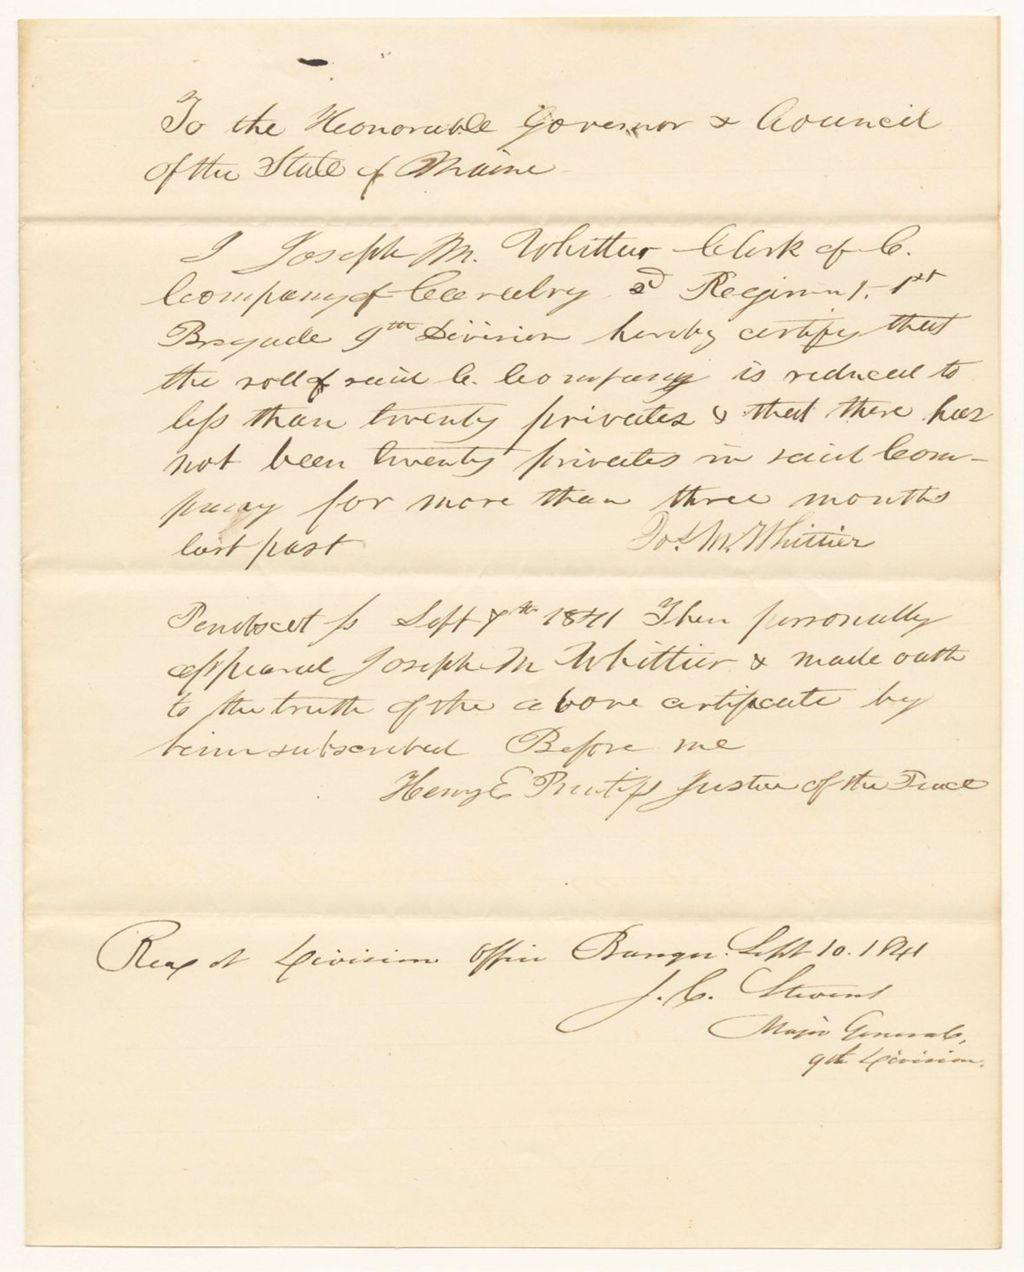 To the Honorable Governor & Council
of the State of Maine
I Joseph M. Whittier Clerk of C.
Company of Cavalry 2d Regiment, 1st
Brigade 9th Division hereby certify that
the roll of said C. Company is reduced to
less than twenty privates & that there has
not been twenty privates in said Com-
pany for more than three months
last past Jos. M. Whittier
Penobscot ss Sept 7th 1841 Then personally
appeared Joseph M Whittier & made oath
to the truth of the above certificate by
him subscribed Before me
Henry E Prentiss Justice of the Peace
Recd at Division Office Bangor. Sept 10. 1841
J. C. Stevens
Major General,
9th Division.